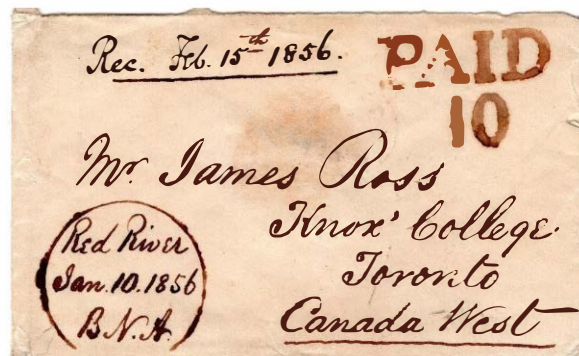 Rec. Feb. 15th 1856.
PAID
10
Mr. James Ross
Knox' College.
Toronto
Canada West
Red River
Jan. 10. 1856
B.N.A.